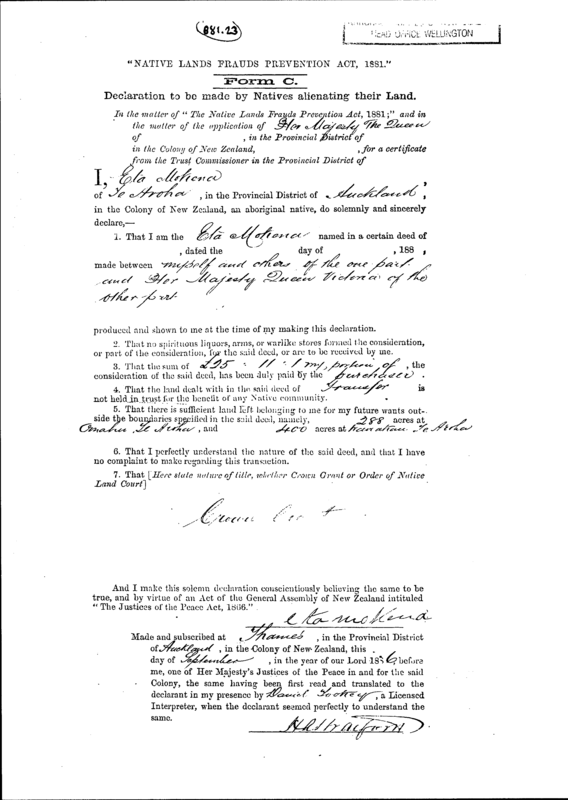 881.23
HEAD OFFICE WELLINGTON
"NATIVE LANDS FRAUDS PREVENTION ACT, 1881."
Form C.
Declaration to be made by Natives alienating their Land.
In the matter of "The Native Lands Frauds Prevention Act, 1881;" and in
the matter of the application of Her Majesty The Queen
of , in the Provincial District of
in the Colony of New Zealand, , for a certificate
from the Trust Commissioner in the Provincial District of
I, Eta Mokena ,
of Te Aroha , in the Provincial District of Auckland ,
in the Colony of New Zealand, an aboriginal native, do solemnly and sincerely
declare,—
1. That I am the Eta Mokena named in a certain deed of
, dated the day of , 188 ,
made between myself and others of the one part
and Her Majesty Queen Victoria of the
other part
produced and shown to me at the time of my making this declaration.
2. That no spirituous liquors, arms, or warlike stores formed the consideration,
or part of the consideration, for the said deed, or are to be received by me.
3. That the sum of £25 : 11 : 1 my portion of , the
consideration of the said deed, has been duly paid by the purchaser .
4. That the land dealt with in the said deed of Transfer is
not held in trust for the benefit of any Native community.
5. That there is sufficient land left belonging to me for my future wants out-
side the boundaries specified in the said deed, namely, 288 acres at
Omahu Te Aroha , and 400 acres at Te Aroha
6. That I perfectly understand the nature of the said deed, and that I have
no complaint to make regarding this transaction.
7. That [Here state nature of title, whether Crown Grant or Order of Native
Land Court]
Crown
And I make this solemn declaration conscientiously believing the same to be
true, and by virtue of an Act of the General Assembly of New Zealand intituled
"The Justices of the Peace Act, 1866."
eta mokena
Made and subscribed at Thames , in the Provincial District
of Auckland , in the Colony of New Zealand, this
day of September , in the year of our Lord 1886 before
me, one of Her Majesty's Justices of the Peace in and for the said
Colony, the same having been first read and translated to the
declarant in my presence by Daniel , a Licensed
Interpreter, when the declarant seemed perfectly to understand the
same.
H A Stratford